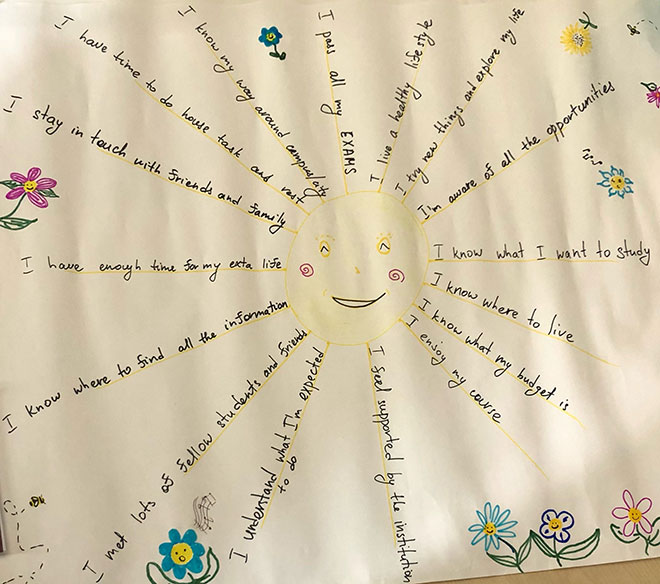 I pass all my EXAMS
I live a healthy life style
I try new things and explore my life
I'm aware of all the opportunities
I know what I want to study
I know where to live
I know what my budget is
I enjoy my course
I feel supported by the institution
I understand what I'm expected
to do
I met lots of fellow students and friends
I know where to find all the information
I have enough time for my exta life
I stay in touch with friends and family
I have time to do house task and rest
I know my way around